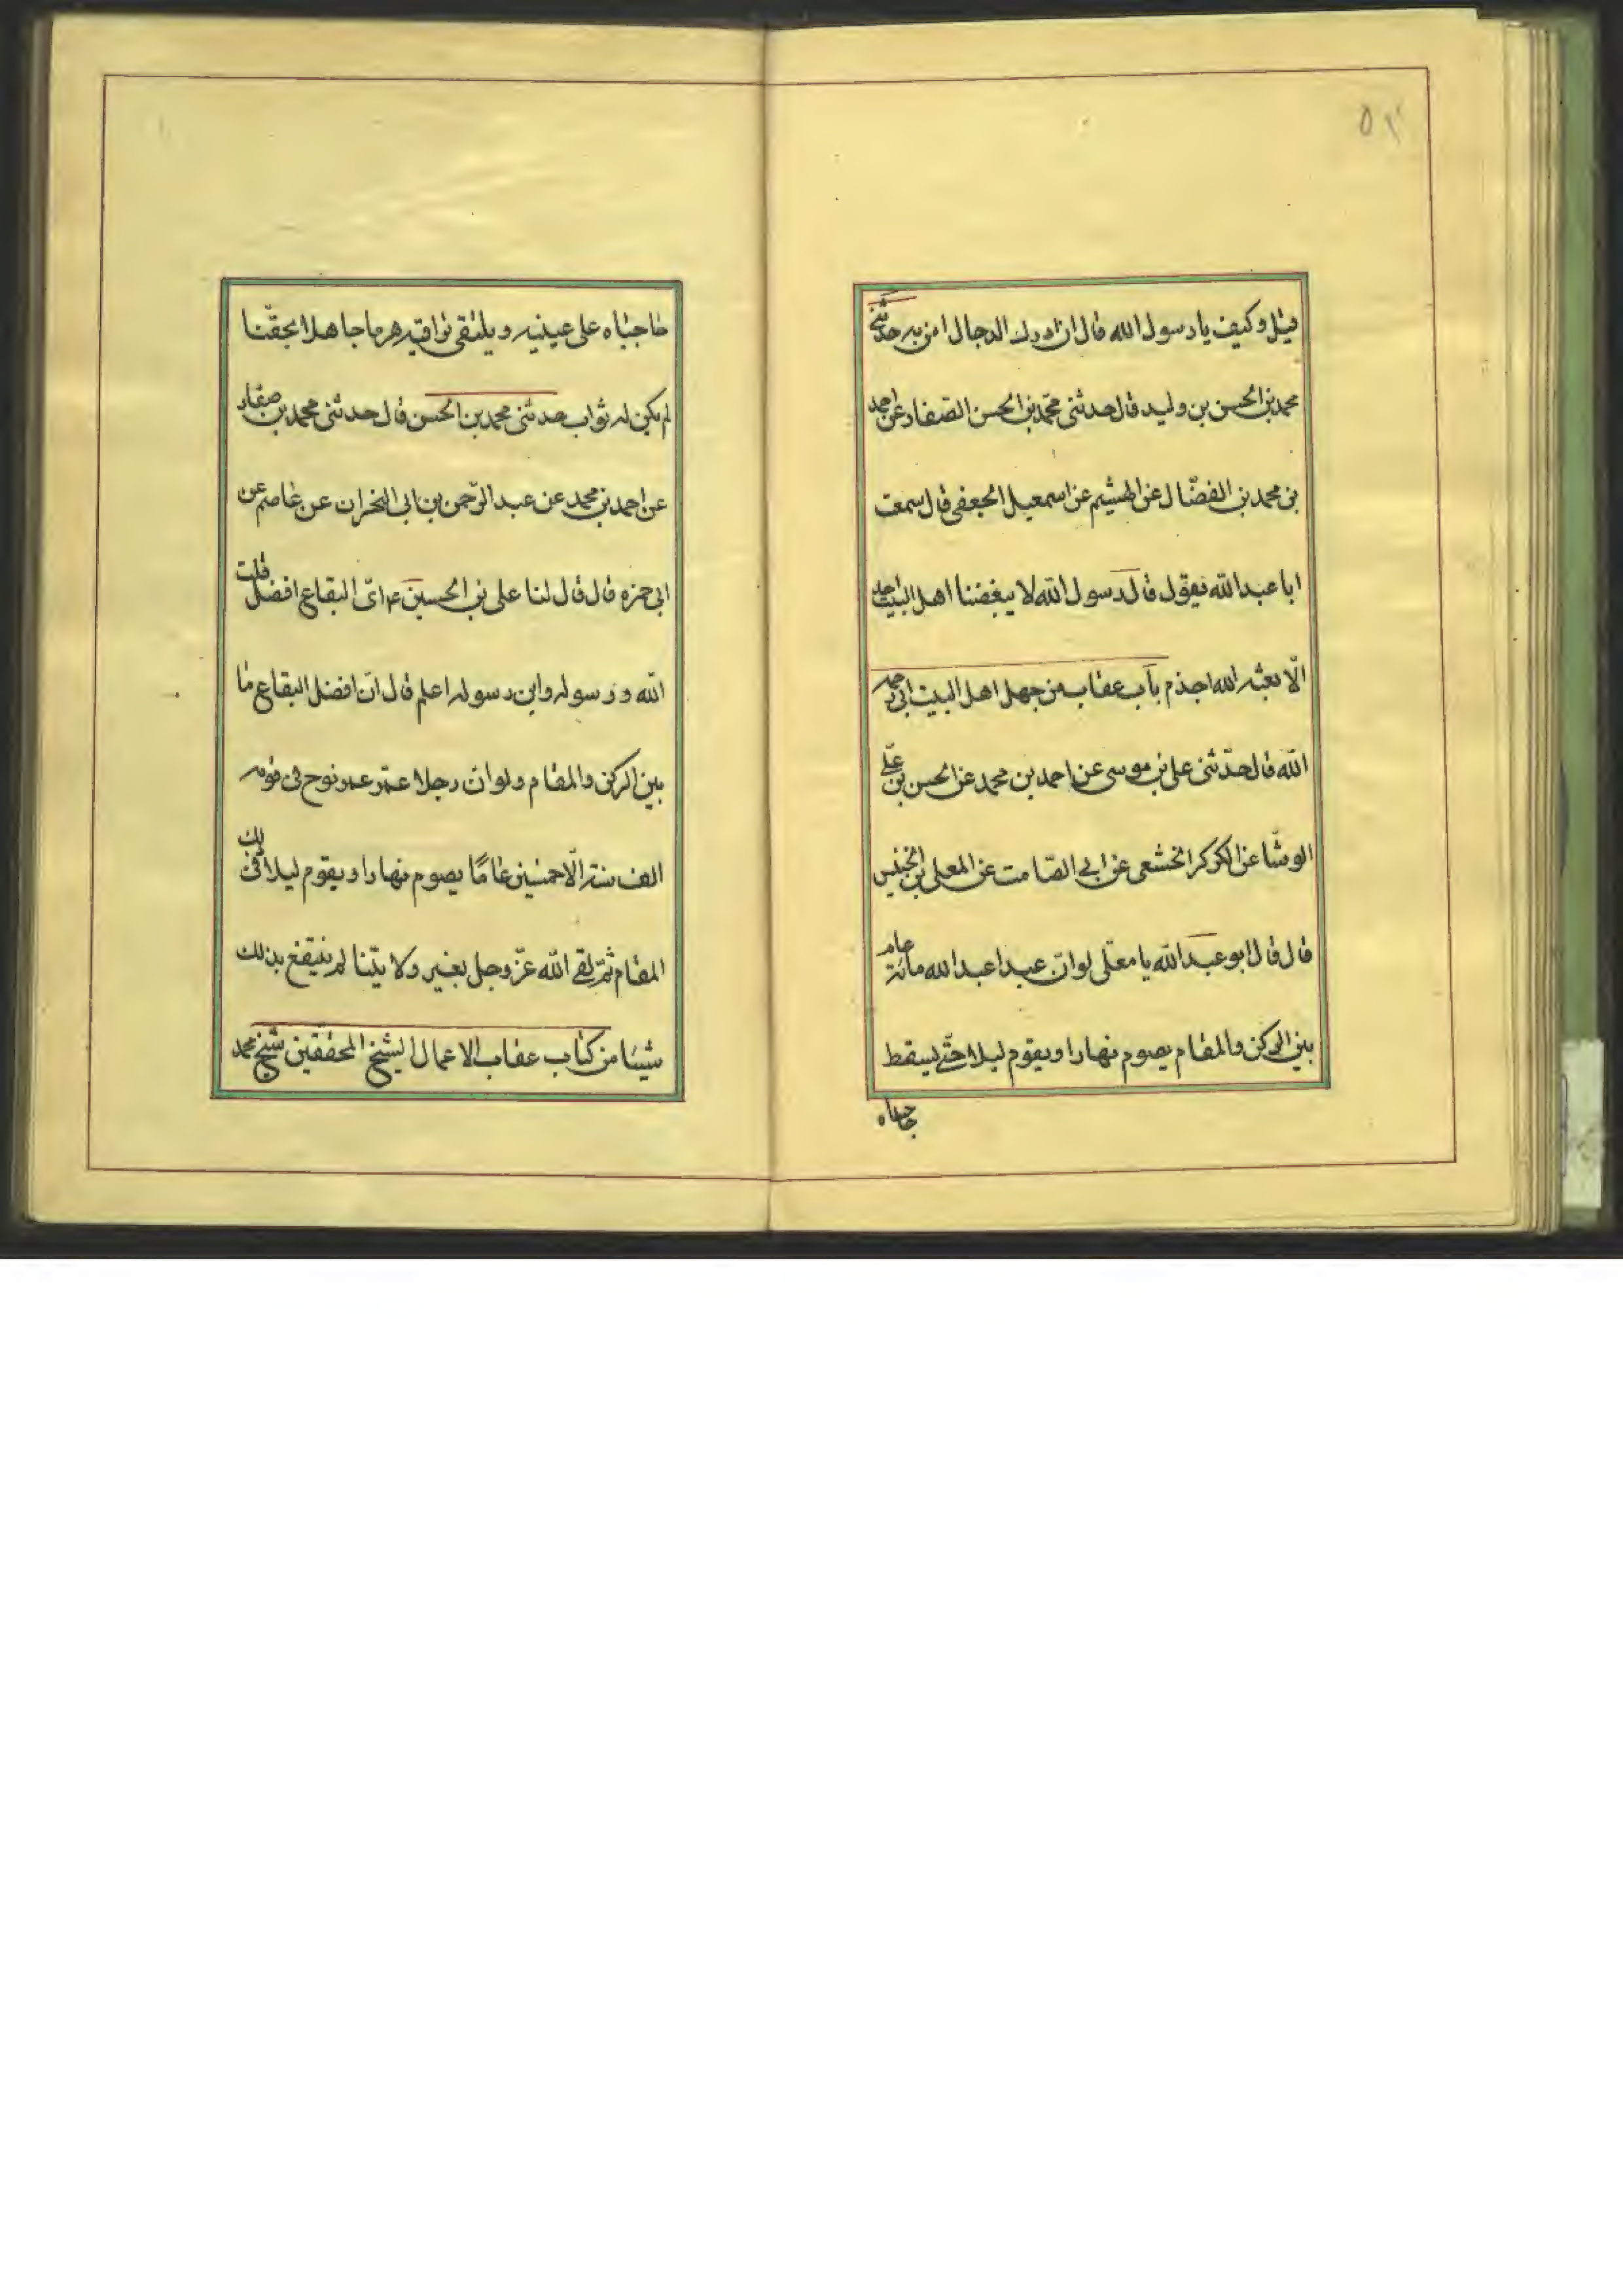 ٥٢
قيل وكيف يا رسول الله قال ان ادرك الدجال امن به حدثني
محمد بن الحسن بن وليد قال حدثنى محمّد بن الحسن الصّفار عن احمد
بن محمد بن الفضّال عن الهشيم عن اسمعيل الجعفى قال سمعت
ابا عبد الله يقول قال رسول الله لا يبغضنا اهل البيت احد
الّا بعثه الله اجذم باب عقاب من جهل اهل البيت ابى رحمه
الله قال حدّثنى على بن موسى عن احمد بن محمد عن الحسن بن علىّ
الوشّا عن الكركر الخشعى عن ابي الصّامت عن المعلى بن الخنيس
قال قال ابو عبد الله يا معلّى لو انّ عبدا عبد الله مائة عام
بين الركن والمقام يصوم نهارا ويقوم ليلا حتّى يسقط
حاجباه
حاجباه على عينيه ويلتقى تراقيه هرما جاهلا بحقّنا
لم يكن له ثواب حدثنى محمد بن الحسن قال حدثنى محمد بن صفار
عن احمد بن محمد عن عبد الرّحمن بن ابى النخران عن عاصم عن
ابى حمزه قال قال لنا على بن الحسين ع اىّ البقاع افضل قلت
الله ورسوله وابن رسوله اعلم قال انّ افضل البقاع ما
بين الركن والمقام ولو انّ رجلا عمّر عمر نوح فى قومه
الف سنة الّا خمسين عامًا يصوم نهارا ويقوم ليلا فى ذلك
المقام ثمّ لقى الله عزّ وجل بغير ولايتنا لم ينتفع بذلك
شيئا من كتاب عقاب الاعمال الشيخ المحققين شيخ محمد